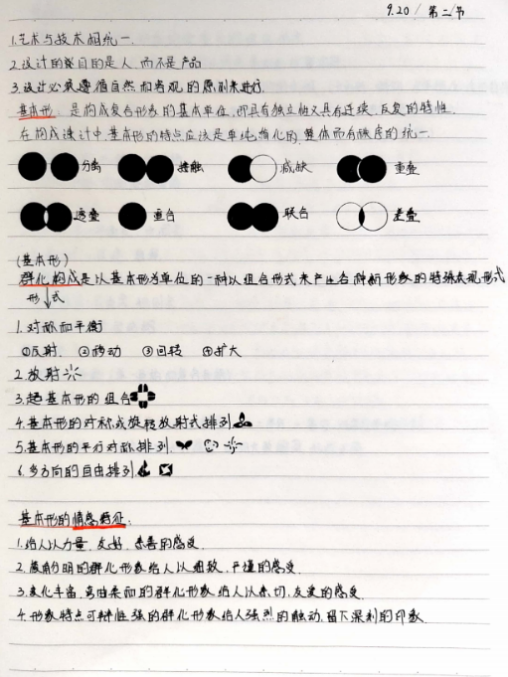 9.20 / 第二节
1.艺术与技术的统一.
2.设计的目的是人,而不是产品
3.设计必须遵循自然和客观的原则来进行.
基本形: 是构成复合形象的基本单位,即具有独立性又具有连续、反复的特性.
在构成设计中,基本形的特点应该是单纯,简化的,整体而有秩序的统一.
分离 接触 减缺 重叠
透叠 重合 联合 差叠
(基本形)
群化构成是以基本形为单位的一种以组合形式来产生各种新形象的特殊表现形式
形式
1.对称和平衡
①反射. ②移动 ③回转 ④扩大
2.放射
3.基本形的组合
4.基本形的对称或旋转放射式排列
5.基本形的平行对称排列.
6.多方向的自由排列
基本形的情感特征:
1.给人以力量、友好、亲善的感受.
2.的群化形象给人以细致、严谨的感受.
3.变化丰富,的群化形象给人以亲切、友爱的感受.
4.形象特点可特性强的群化形象给人强烈的触动,留下深刻的印象.